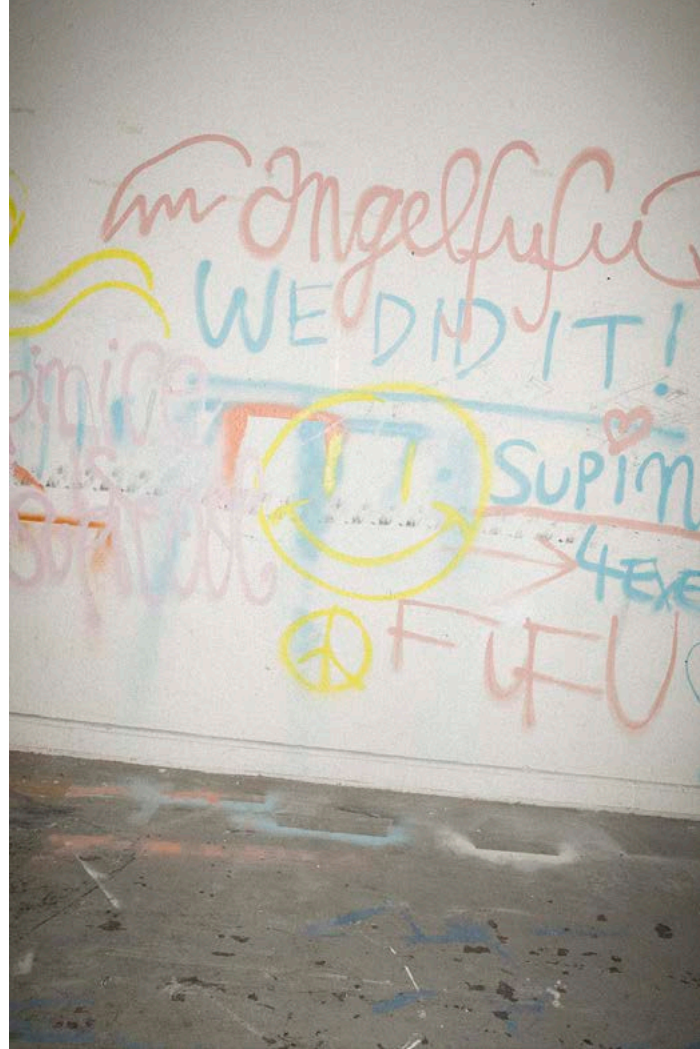 angelfufu
WE DID IT!
SUPIM
4EXE
FUFU